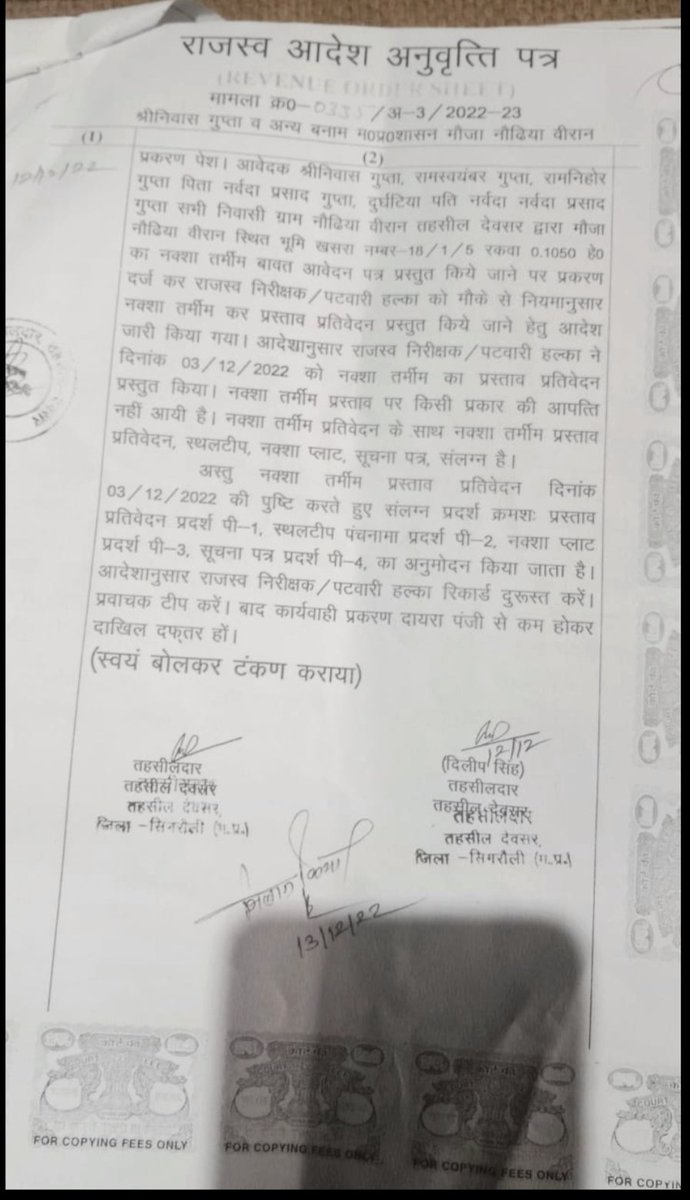 राजस्व आदेश अनुवृत्ति पत्र
(REVENUE ORDER SHEET)
मामला क्र0-0335/अ-3/2022-23
श्रीनिवास गुप्ता व अन्य बनाम म0प्र0शासन मौजा नौढिया वीरान
(1)
(2)
प्रकरण पेश। आवेदक श्रीनिवास गुप्ता, रामस्वयंबर गुप्ता, रामनिहोर
गुप्ता पिता नर्वदा प्रसाद गुप्ता, दुर्घटिया पति नर्वदा नर्वदा प्रसाद
गुप्ता सभी निवासी ग्राम नौढिया वीरान तहसील देवसर द्वारा मौजा
नौढिया वीरान स्थित भूमि खसरा नम्बर-18/1/5 रकवा 0.1050 हे0
का नक्शा तर्मीम बावत आवेदन पत्र प्रस्तुत किये जाने पर प्रकरण
दर्ज कर राजस्व निरीक्षक/पटवारी हल्का को मौके से नियमानुसार
नक्शा तर्मीम कर प्रस्ताव प्रतिवेदन प्रस्तुत किये जाने हेतु आदेश
जारी किया गया। आदेशानुसार राजस्व निरीक्षक/पटवारी हल्का ने
दिनांक 03/12/2022 को नक्शा तर्मीम का प्रस्ताव प्रतिवेदन
प्रस्तुत किया। नक्शा तर्मीम प्रस्ताव पर किसी प्रकार की आपत्ति
नहीं आयी है। नक्शा तर्मीम प्रतिवेदन के साथ नक्शा तर्मीम प्रस्ताव
प्रतिवेदन, स्थलटीप, नक्शा प्लाट, सूचना पत्र, संलग्न है।
अस्तु नक्शा तर्मीम प्रस्ताव प्रतिवेदन दिनांक
03/12/2022 की पुष्टि करते हुए संलग्न प्रदर्श क्रमशः प्रस्ताव
प्रतिवेदन प्रदर्श पी-1, स्थलटीप पंचनामा प्रदर्श पी-2, नक्शा प्लाट
प्रदर्श पी-3, सूचना पत्र प्रदर्श पी-4, का अनुमोदन किया जाता है।
आदेशानुसार राजस्व निरीक्षक/पटवारी हल्का रिकार्ड दुरूस्त करें।
प्रवाचक टीप करें। बाद कार्यवाही प्रकरण दायरा पंजी से कम होकर
दाखिल दफ्तर हों।
(स्वयं बोलकर टंकण कराया)
तहसीलदार
तहसील देवसर
तहसील देवसर,
जिला -सिंगरौली (म.प्र.)
12/12
(दिलीप सिंह)
तहसीलदार
तहसील देवसर,
तहसीलदार
तहसील देवसर,
जिला -सिंगरौली (म.प्र.)
13/12/22
FOR COPYING FEES ONLY
FOR COPYING FEES ONLY
FOR COPYING FEES ONLY
FOR COPYIN